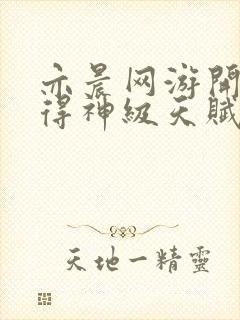 亦晨网游開
得神級天賦
天地一精靈